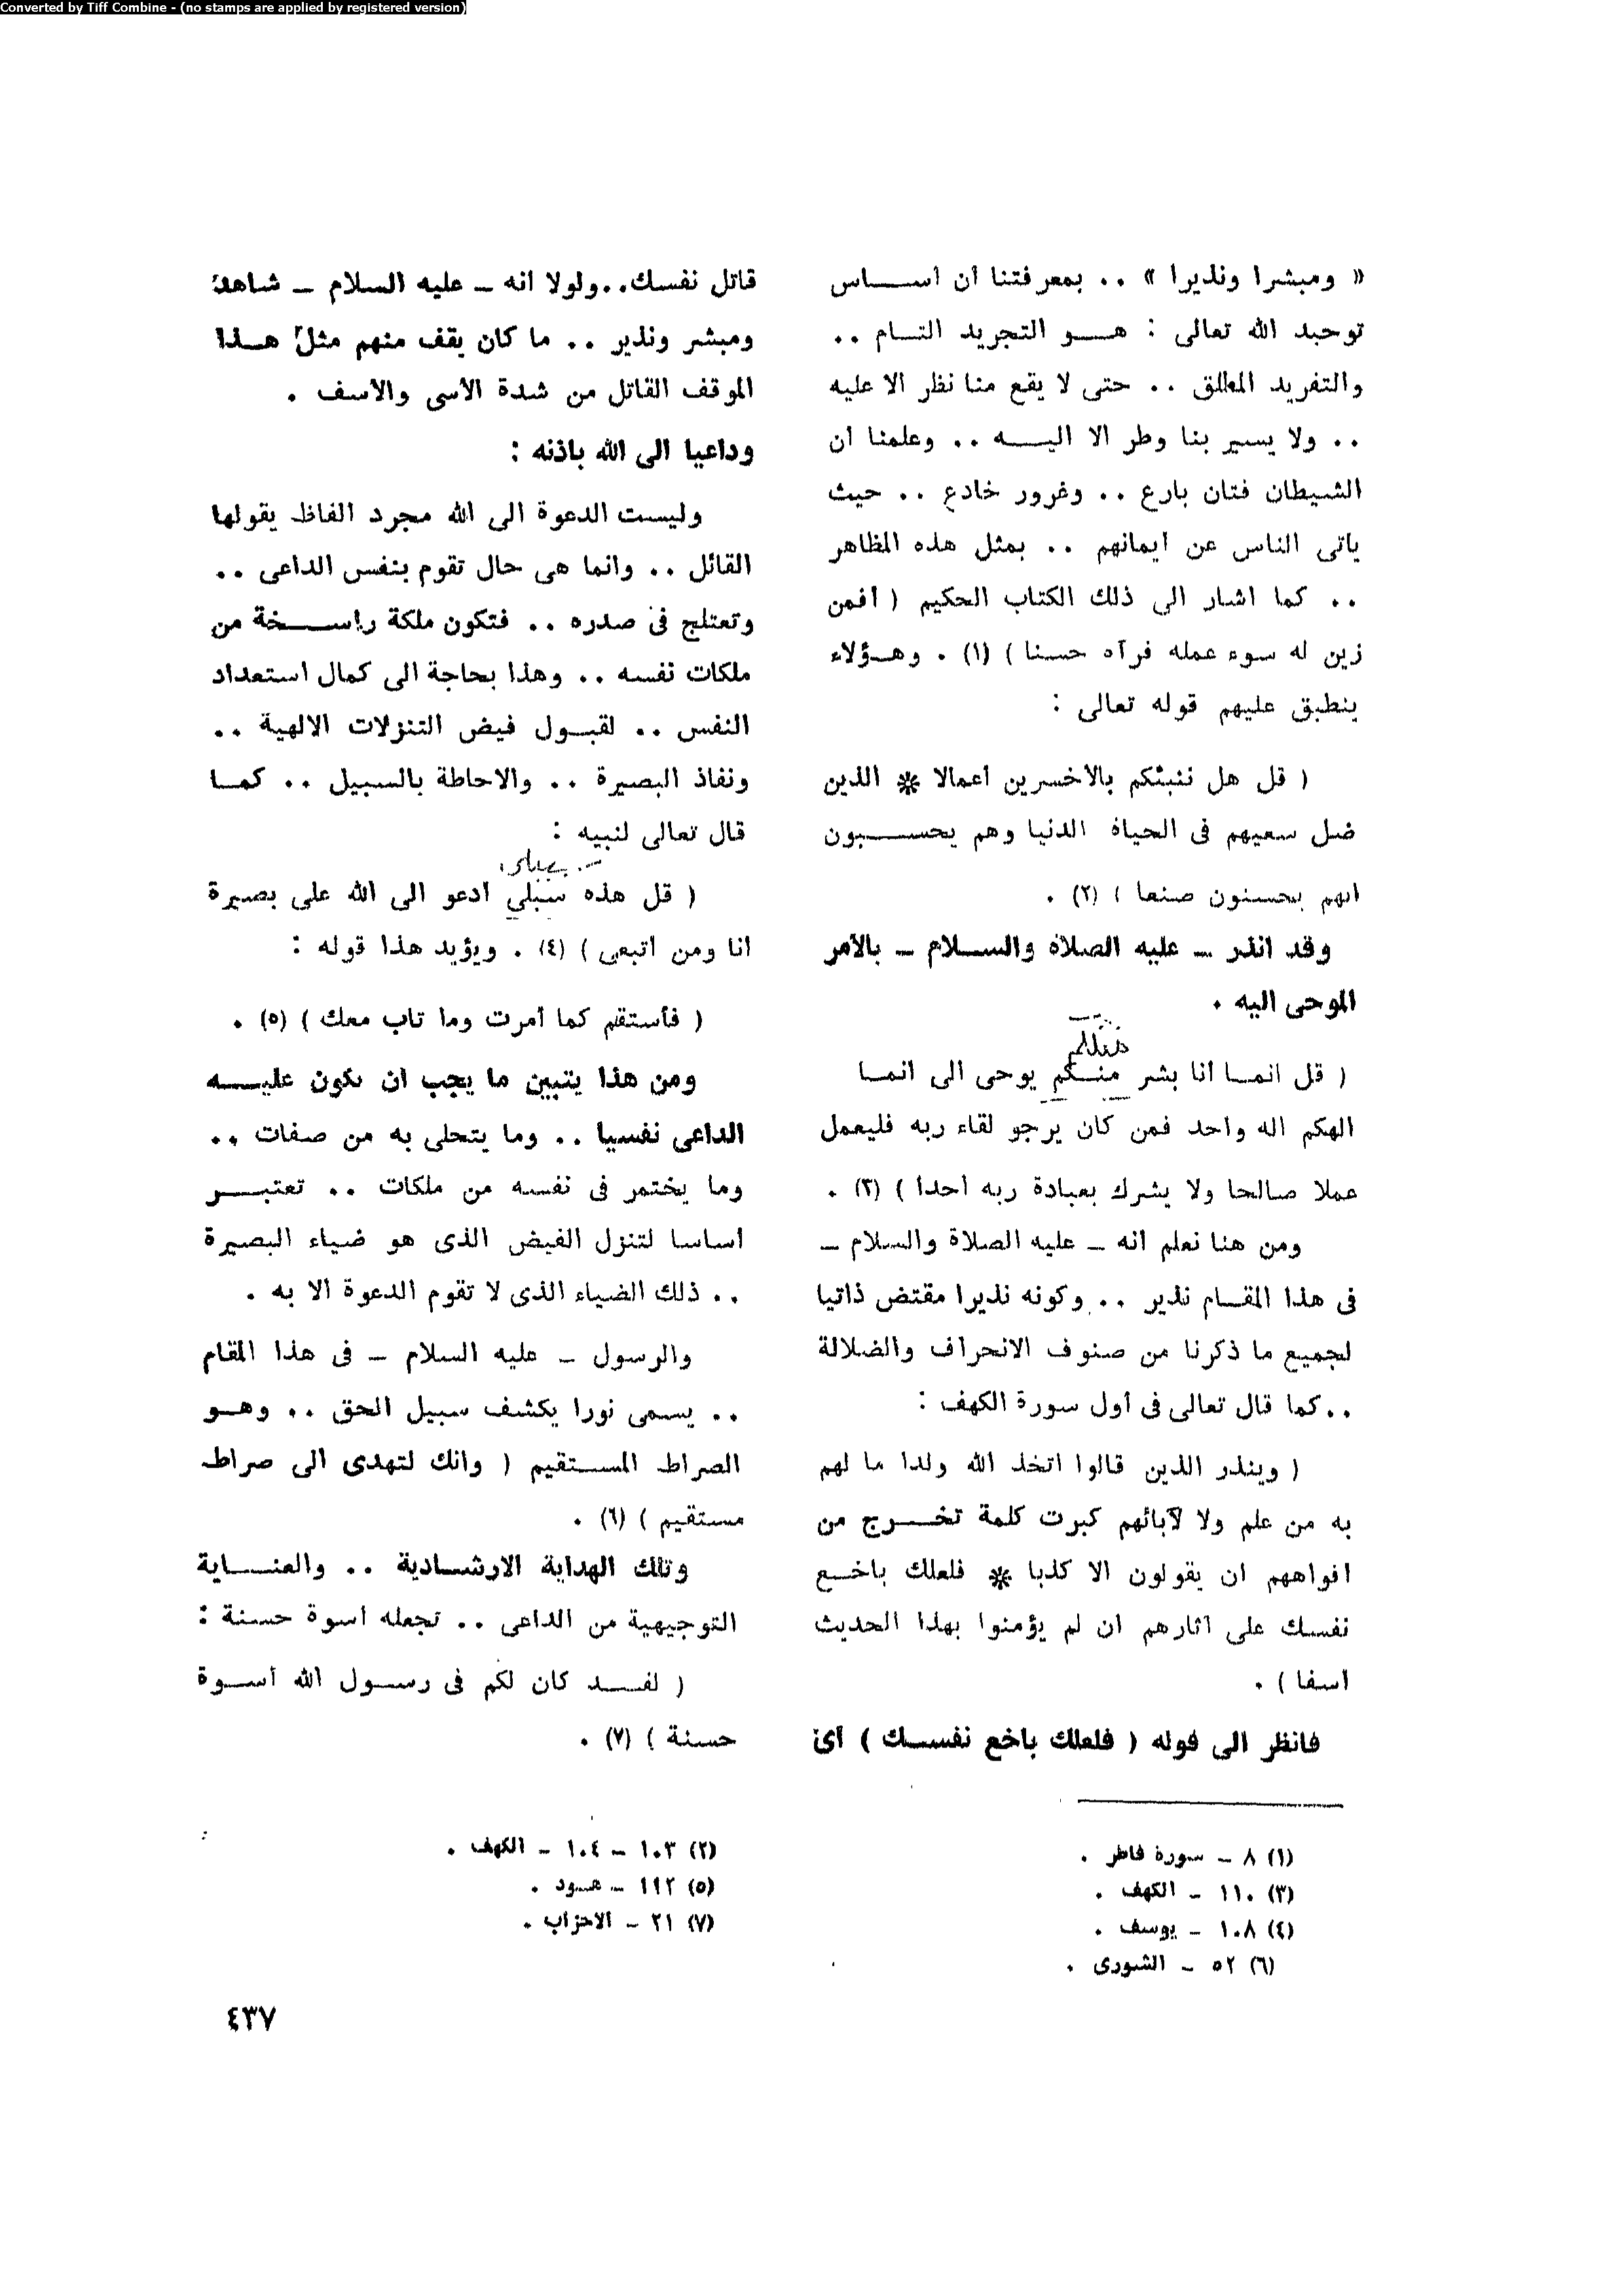 Converted by Tiff Combine - (no stamps are applied by registered version)
« ومبشرا ونذيرا » .. بمعرفتنا أن أساس
توحيد الله تعالى : هو التجريد التام ..
والتفريد المطلق .. حتى لا يقع منا نظر الا عليه
.. ولا يسير بنا وطر الا اليه .. وعلمنا ان
الشيطان فتان بارع .. وغرور خادع .. حيث
ياتى الناس عن ايمانهم .. بمثل هذه المظاهر
.. كما اشار الى ذلك الكتاب الحكيم ( أفمن
زين له سوء عمله فرآه حسنا ) (١) . وهؤلاء
ينطبق عليهم قوله تعالى :
( قل هل ننبئكم بالأخسرين أعمالا * الذين
ضل سعيهم فى الحياة الدنيا وهم يحسبون
انهم يحسنون صنعا ) (٢) .
وقد انذر - عليه الصلاة والسلام - بالأمر
الموحى اليه .
مثلكم
( قل انما أنا بشر منكم يوحى الى انما
الهكم اله واحد فمن كان يرجو لقاء ربه فليعمل
عملا صالحا ولا يشرك بعبادة ربه أحدا ) (٣) .
ومن هنا نعلم انه - عليه الصلاة والسلام -
فى هذا المقام نذير .. وكونه نذيرا مقتض ذاتيا
لجميع ما ذكرنا من صنوف الانحراف والضلالة
.. كما قال تعالى فى أول سورة الكهف :
( وينذر الذين قالوا اتخذ الله ولدا ما لهم
به من علم ولا لآبائهم كبرت كلمة تخرج من
افواههم ان يقولون الا كذبا * فلعلك باخع
نفسك على آثارهم ان لم يؤمنوا بهذا الحديث
أسفا ) .
فانظر الى قوله ( فلعلك باخع نفسك ) أى
قاتل نفسك.. ولولا انه - عليه السلام - شاهد
ومبشر ونذير .. ما كان يقف منهم مثل هذا
الموقف القاتل من شدة الأسى والأسف .
وداعيا الى الله باذنه :
وليست الدعوة الى الله مجرد الفاظ يقولها
القائل .. وانما هى حال تقوم بنفس الداعى ..
وتعتلج فى صدره .. فتكون ملكة راسخة من
ملكات نفسه .. وهذا بحاجة الى كمال استعداد
النفس .. لقبول فيض التنزلات الالهية ..
ونفاذ البصيرة .. والاحاطة بالسبيل .. كما
قال تعالى لنبيه :
( قل هذه سبلي أدعو الى الله على بصيرة
أنا ومن اتبعى ) (٤) . ويؤيد هذا قوله :
( فأستقم كما أمرت وما تاب معك ) (٥) .
ومن هذا يتبين ما يجب ان تكون عليه
الداعى نفسيا .. وما يتحلى به من صفات ..
وما يختمر فى نفسه من ملكات .. تعتبر
أساسا لتنزل الفيض الذى هو ضياء البصيرة
.. ذلك الضياء الذى لا تقوم الدعوة الا به .
والرسول - عليه السلام - فى هذا المقام
.. يسمى نورا يكشف سبيل الحق .. وهو
الصراط المستقيم ( وانك لتهدى الى صراط
مستقيم ) (٦) .
وتلك الهداية الارشادية .. والعناية
التوجيهية من الداعى .. تجعله أسوة حسنة :
( لقد كان لكم فى رسول الله أسوة
حسنة ) (٧) .
(١) ٨ - سورة فاطر .
(٢) ١٠٣ - ١٠٤ - الكهف .
(٣) ١١٠ - الكهف .
(٥) ١١٢ - هود .
(٤) ١٠٨ - يوسف .
(٧) ٢١ - الاحزاب .
(٦) ٥٢ - الشورى .
٤٣٧